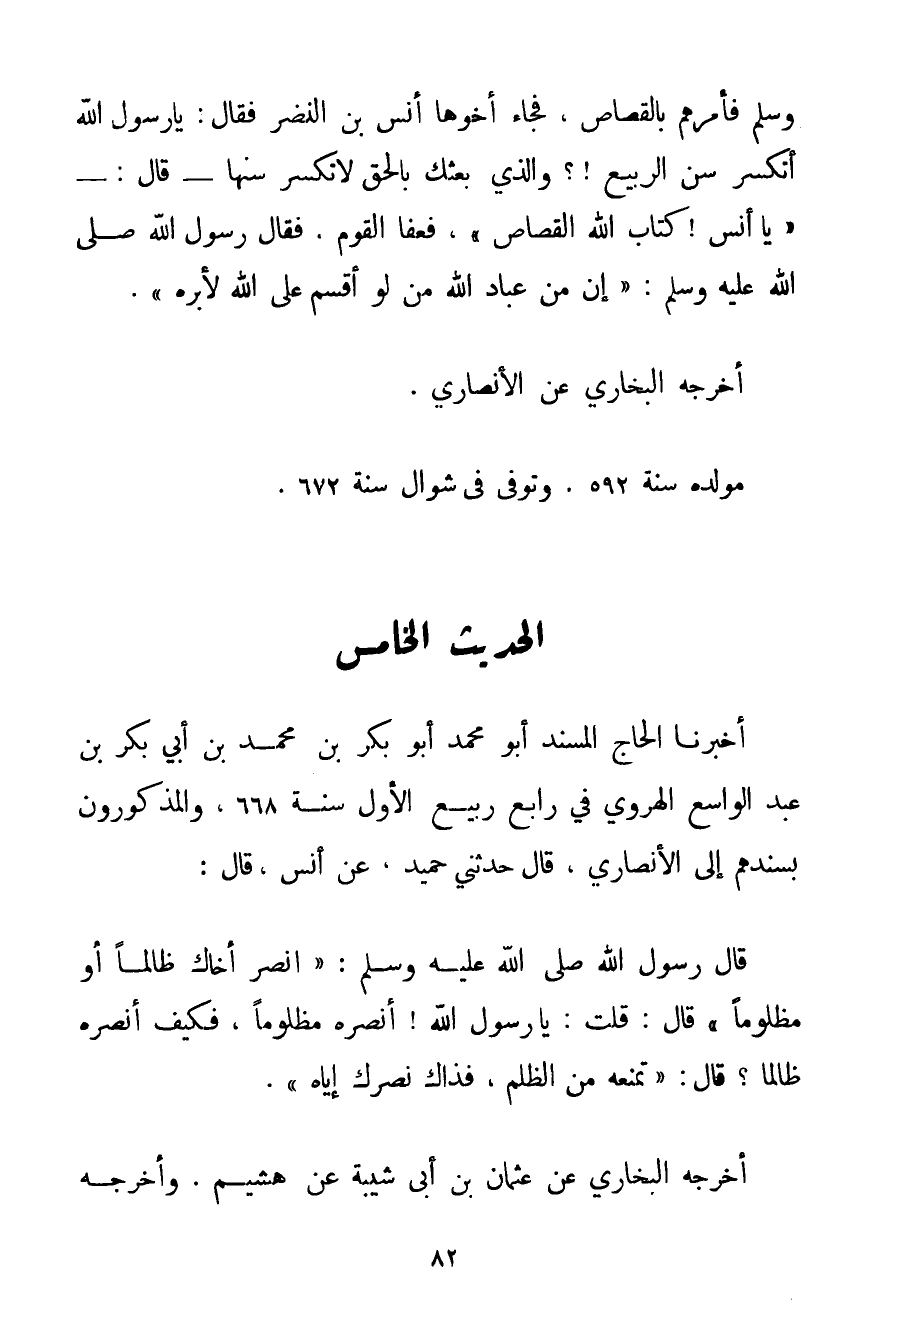 وسلم فأمرهم بالقصاص ، فجاء أخوها أنس بن النضر فقال : يارسول الله
أتكسر سن الربيع ! ؟ والذي بعثك بالحق لاتكسر سنها — قال : —
« يا أنس ! كتاب الله القصاص » ، فعفا القوم . فقال رسول الله صلى
الله عليه وسلم : « إن من عباد الله من لو أقسم على الله لأبره » .
أخرجه البخاري عن الأنصاري .
مولده سنة ٥٩٢ . وتوفى فى شوال سنة ٦٧٢ .
الحديث الخامس
أخبرنا الحاج المسند أبو محمد أبو بكر بن محمد بن أبي بكر بن
عبد الواسع الهروي في رابع ربيع الأول سنة ٦٦٨ ، والمذكورون
بسندهم إلى الأنصاري ، قال حدثني حميد ، عن أنس ، قال :
قال رسول الله صلى الله عليه وسلم : « انصر أخاك ظالماً أو
مظلوماً » قال : قلت : يارسول الله ! أنصره مظلوماً ، فكيف أنصره
ظالما ؟ قال : « تمنعه من الظلم ، فذاك نصرك إياه » .
أخرجه البخاري عن عثمان بن أبى شيبة عن هشيم . وأخرجه
٨٢